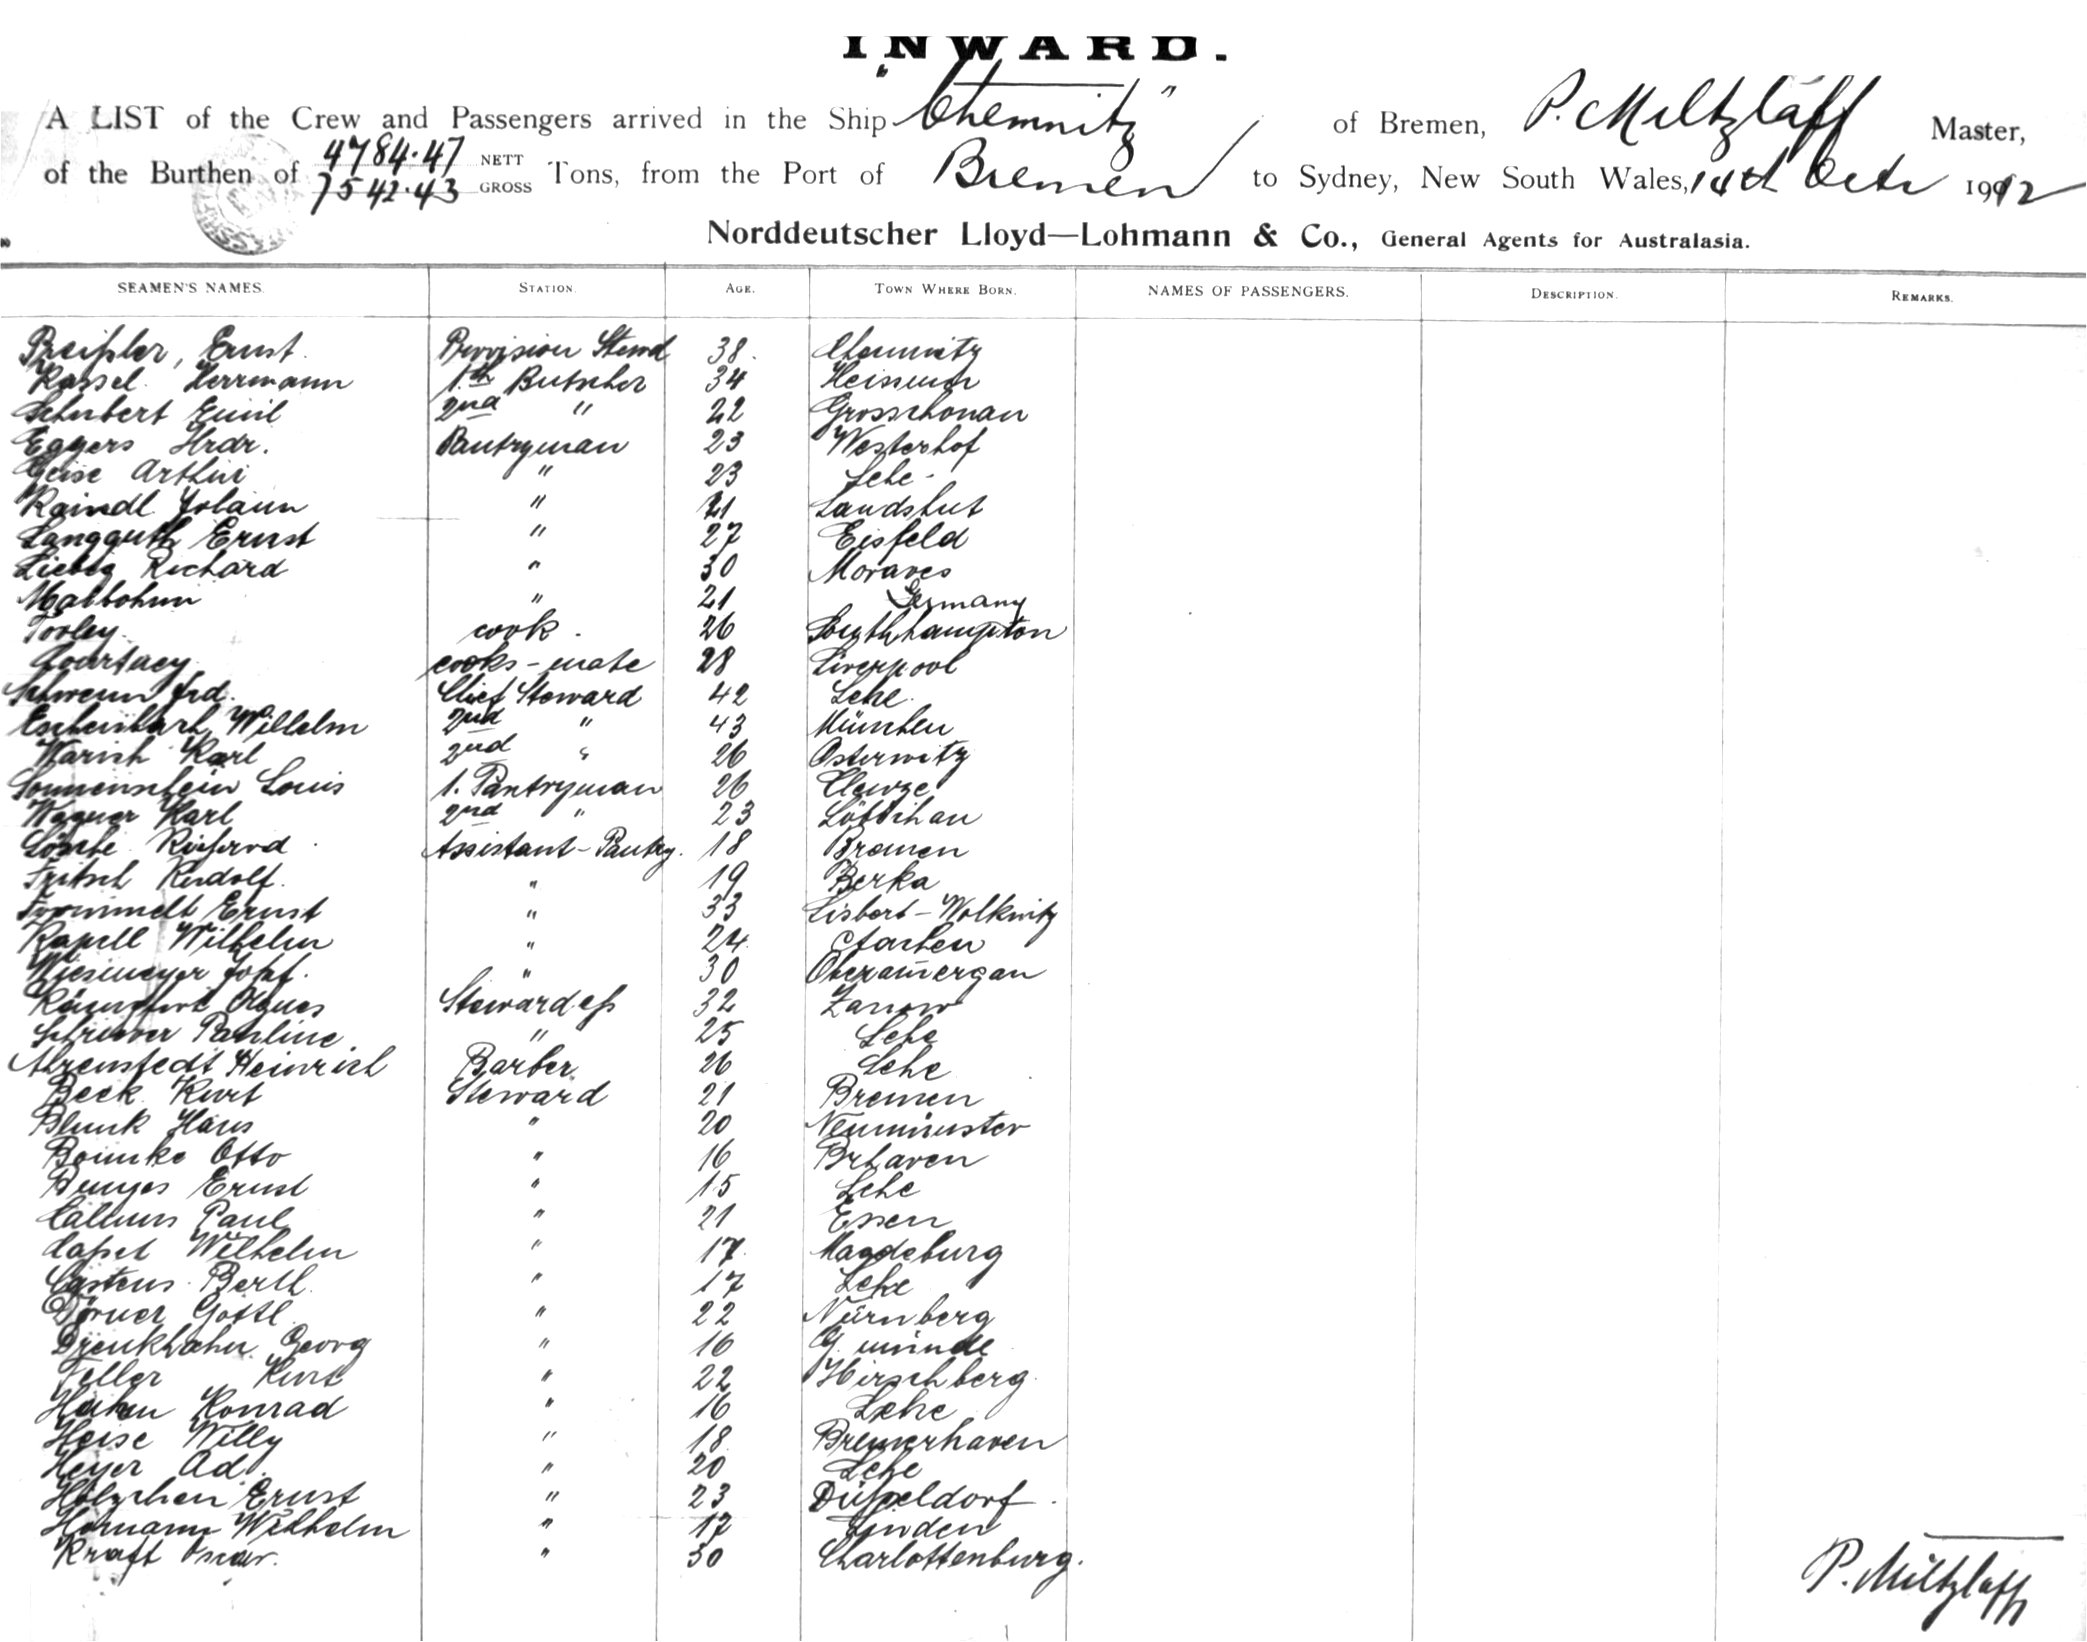 INWARD.
A LIST of the Crew and Passengers arrived in the Ship "Chemnitz" of Bremen, P. Miltzlaff Master,
of the Burthen of 4784.47 NETT 7542.43 GROSS Tons, from the Port of Bremen to Sydney, New South Wales, 14th Octr 1912
Norddeutscher Lloyd—Lohmann & Co., General Agents for Australasia.
SEAMEN'S NAMES. STATION. AGE. TOWN WHERE BORN. NAMES OF PASSENGERS. DESCRIPTION. REMARKS.
Preißler, Ernst. Provision Stewd 38. Chemnitz
Kassel Herrmann 1th Butscher 34 Heissum
Schubert Emil 2nd " 22 Grosschonau
Eggers Hrdr. Pantryman 23 Westerhof
Geise Arthur " 23 Lehe
Raindl Johann " 21 Landshut
Langguth Ernst " 27 Eisfeld
Liebig Richard " 30 Moraves
" 21 Germany
Torley cook. 26 Southhampton
Courtacy cooks-mate 28 Liverpool
Schwenn frd. Chief Steward 42 Lehe
Eschenbach Wilhelm 2nd " 43 München
Warish Karl 2nd " 26 Osterwitz
Sonnenschein Louis 1. Pantryman 26 Clenze
Wagner Karl 2nd " 23
Lösche Assistant-Pantry. 18 Bremen
Fritsch Rudolf. " 19 Berka
Frommelt Ernst " 33 Wolkwitz
Kapell Wilhelm " 24
Wiesmeyer Johf. " 30 Oberamergau
Agnes Stewardeß 32 Zanow
Schriever Pauline " 25 Lehe
Ahrenstedt Heinrich Barber 26 Lehe
Beck Kurt Steward 21 Bremen
Blunk Hans " 20 Neumünster
Bömke Otto " 16 Brhaven
Bunjes Ernst " 15 Lehe
Callum Paul " 21 Essen
Wilhelm " 17 Magdeburg
Castens Berth. " 17 Lehe
Dörner Gottl. " 22 Nürnberg
Georg " 16 G. münde
Feller Kurt " 22 Hirschberg
Hahn Konrad " 16 Lehe
Heise Willy " 18 Bremerhaven
Heyer Ad. " 20 Lehe
Hölzchen Ernst " 23 Düßeldorf
Homann Wilhelm " 17 Linden
Kraft Oscar. " 30 Charlottenburg.
P. Miltzlaff